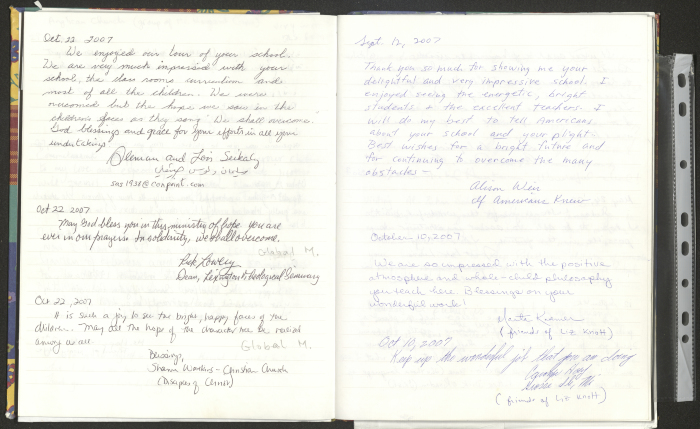 Oct. 22 2007
We enjoyed our tour of your school.
We are very much impressed with your
school, the class rooms and
most of all the children. We were
but the hope we saw in the
children's faces as they sang "We shall overcome."
God blessings and grace for your efforts in all your
undertakings
and Lori Seikaly
sas1931@conpoint.com
Oct 22 2007
May God bless you in this ministry of hope. You are
ever in our prayers. In solidarity, we shall overcome.
Global M.
Rick Lowery
Dean, Lexington Theological Seminary
Oct 22, 2007
It is such a joy to see the bright, happy faces of the
children. May all the hope of the be realized
among us all.
Global M.
Blessings,
Sharon Watkins - Christian Church
(Disciples of Christ)
Sept. 12, 2007
Thank you so much for showing me your
delightful and very impressive school. I
enjoyed seeing the energetic, bright
students & the excellent teachers. I
will do my best to tell Americans
about your school and your plight-
Best wishes for a bright future and
for continuing to overcome the many
obstacles -
Alison Weir
If Americans Knew
October 10, 2007
We are so impressed with the positive
atmosphere and whole-child philosophy
you teach here. Blessings on your
wonderful work!
(friends of Liz Knott)
Oct 10, 2007
Keep up the wonderful job that you are doing
Carolyn
(friends of Liz Knott)